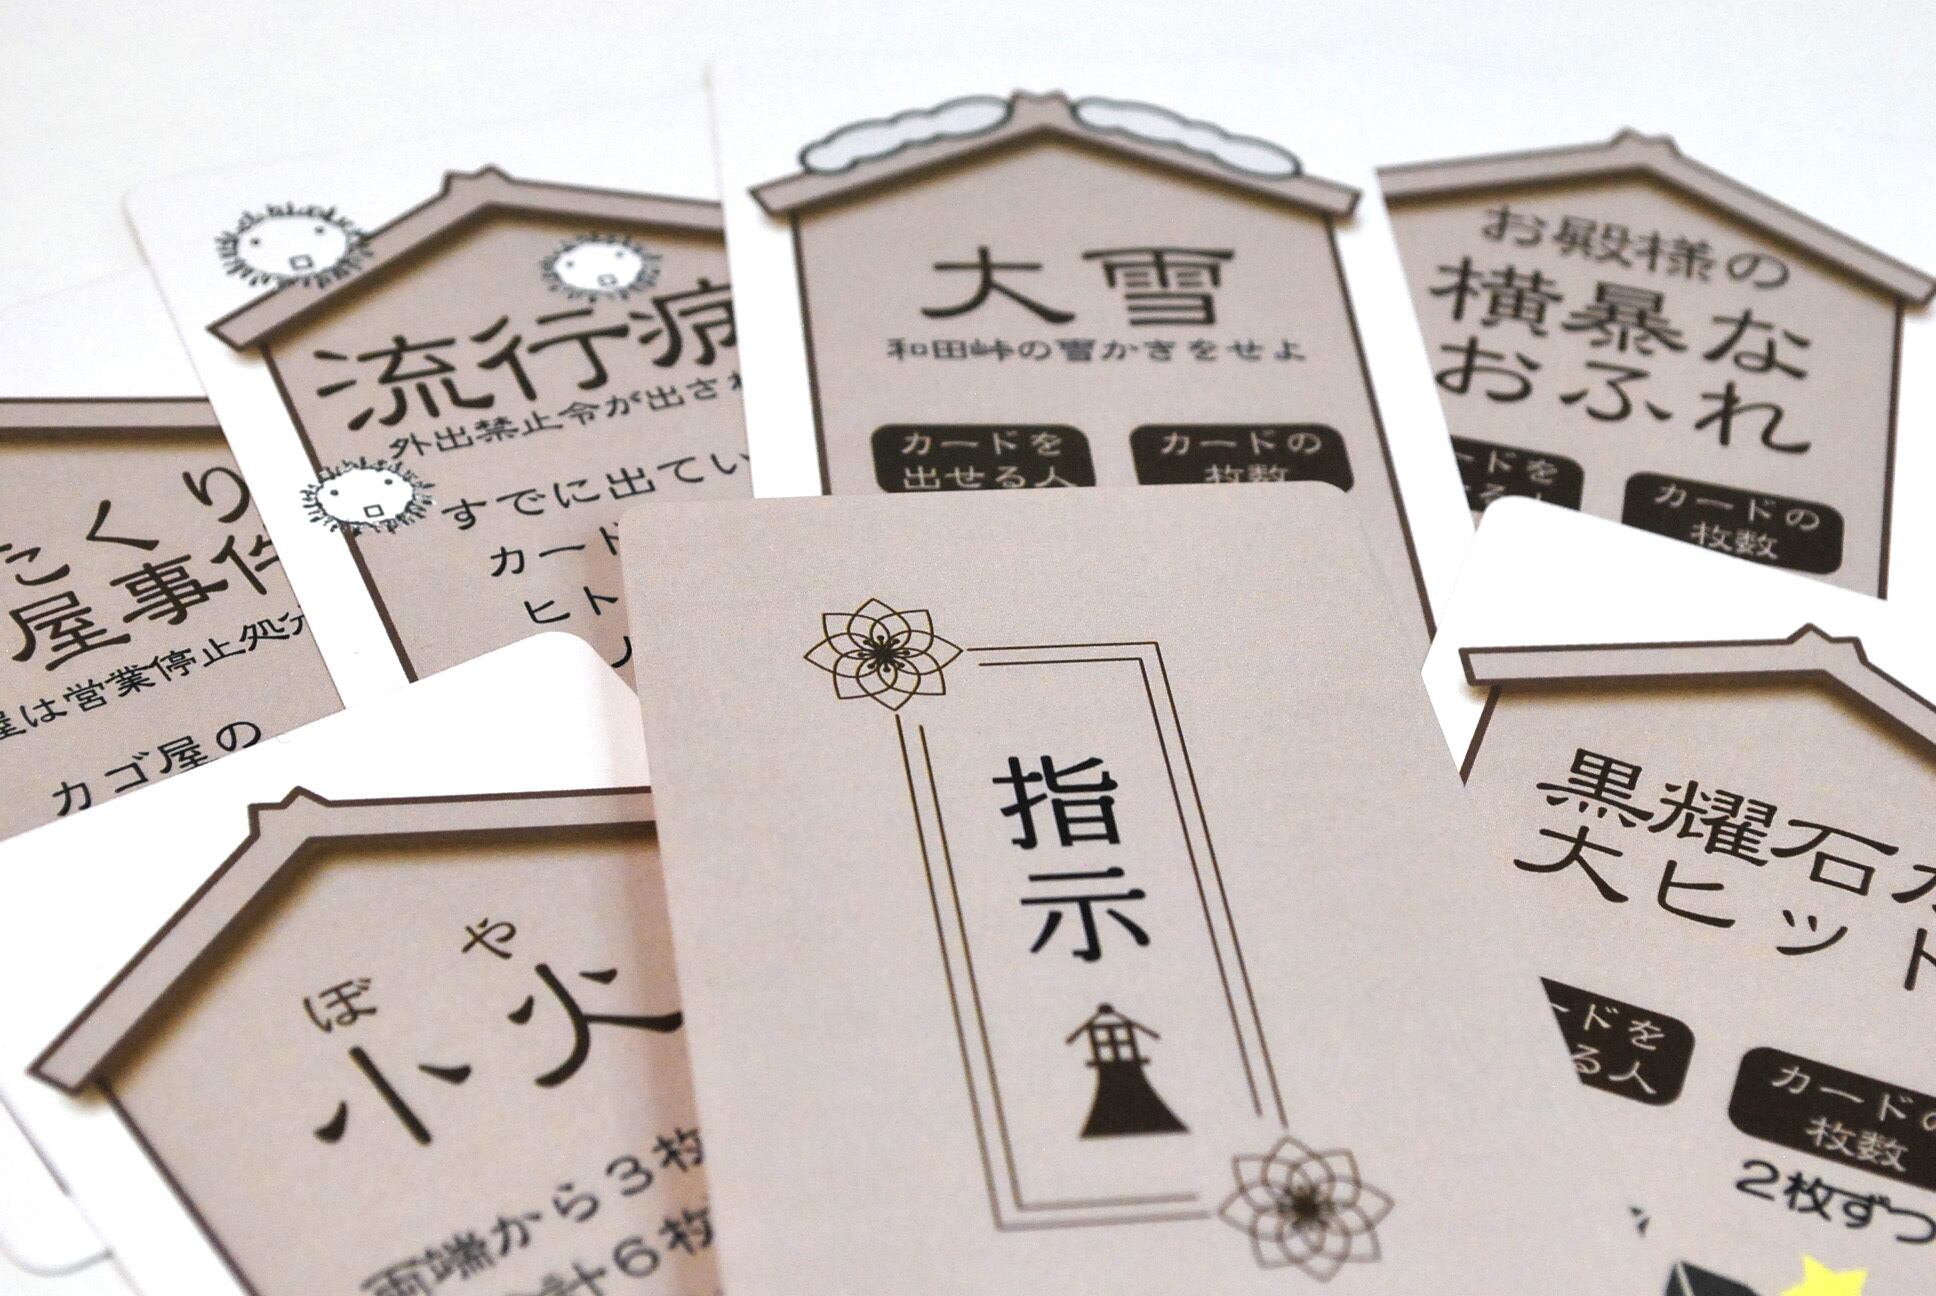 くり
屋事件
屋は営業停止処
カゴ屋の
流行病
外出禁止令が出され
すでに出てい
カード
ヒト
大雪
和田峠の雪かきをせよ
カードを
出せる人
カードの
枚数
お殿様の
横暴な
おふれ
ードを
る人
カードの
枚数
ぼや
小火
両端から3枚
計6枚
指示
黒耀石が
大ヒット
ードを
る人
カードの
枚数
2枚ずつ